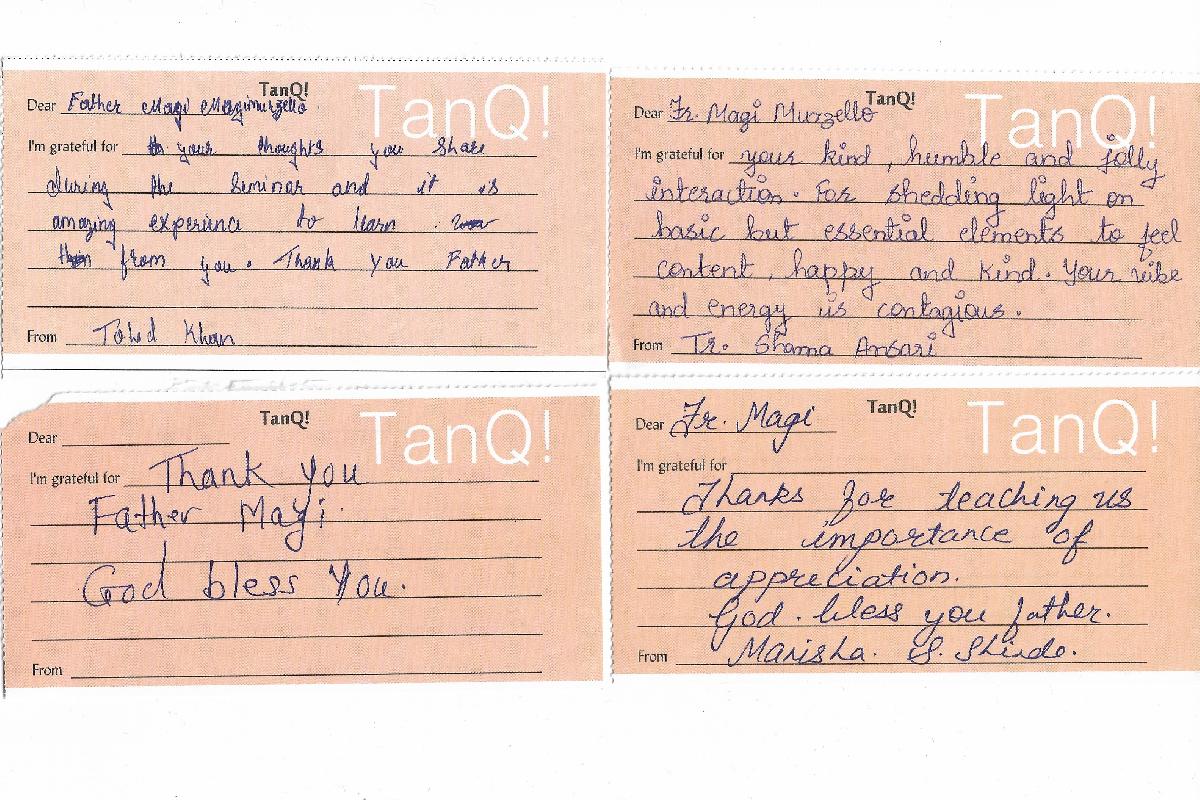 TanQ!
TanQ!
Dear Father Magi Magimurzello
I'm grateful for your thoughts you share
during the Seminar and it is
amazing experience to learn
from you. Thank you Father
From Tohid Khan
TanQ!
TanQ!
Dear Fr. Magi Murzello
I'm grateful for your kind, humble and jolly
interaction. For shedding light on
basic but essential elements to feel
content, happy and kind. Your vibe
and energy is contagious.
From Tr. Shama Ansari
TanQ!
TanQ!
Dear
I'm grateful for Thank you
Father Magi.
God bless You.
From
TanQ!
TanQ!
Dear Fr. Magi
I'm grateful for
Thanks for teaching us
the importance of
appreciation.
God. bless you father.
From Manisha. S. Shinde.